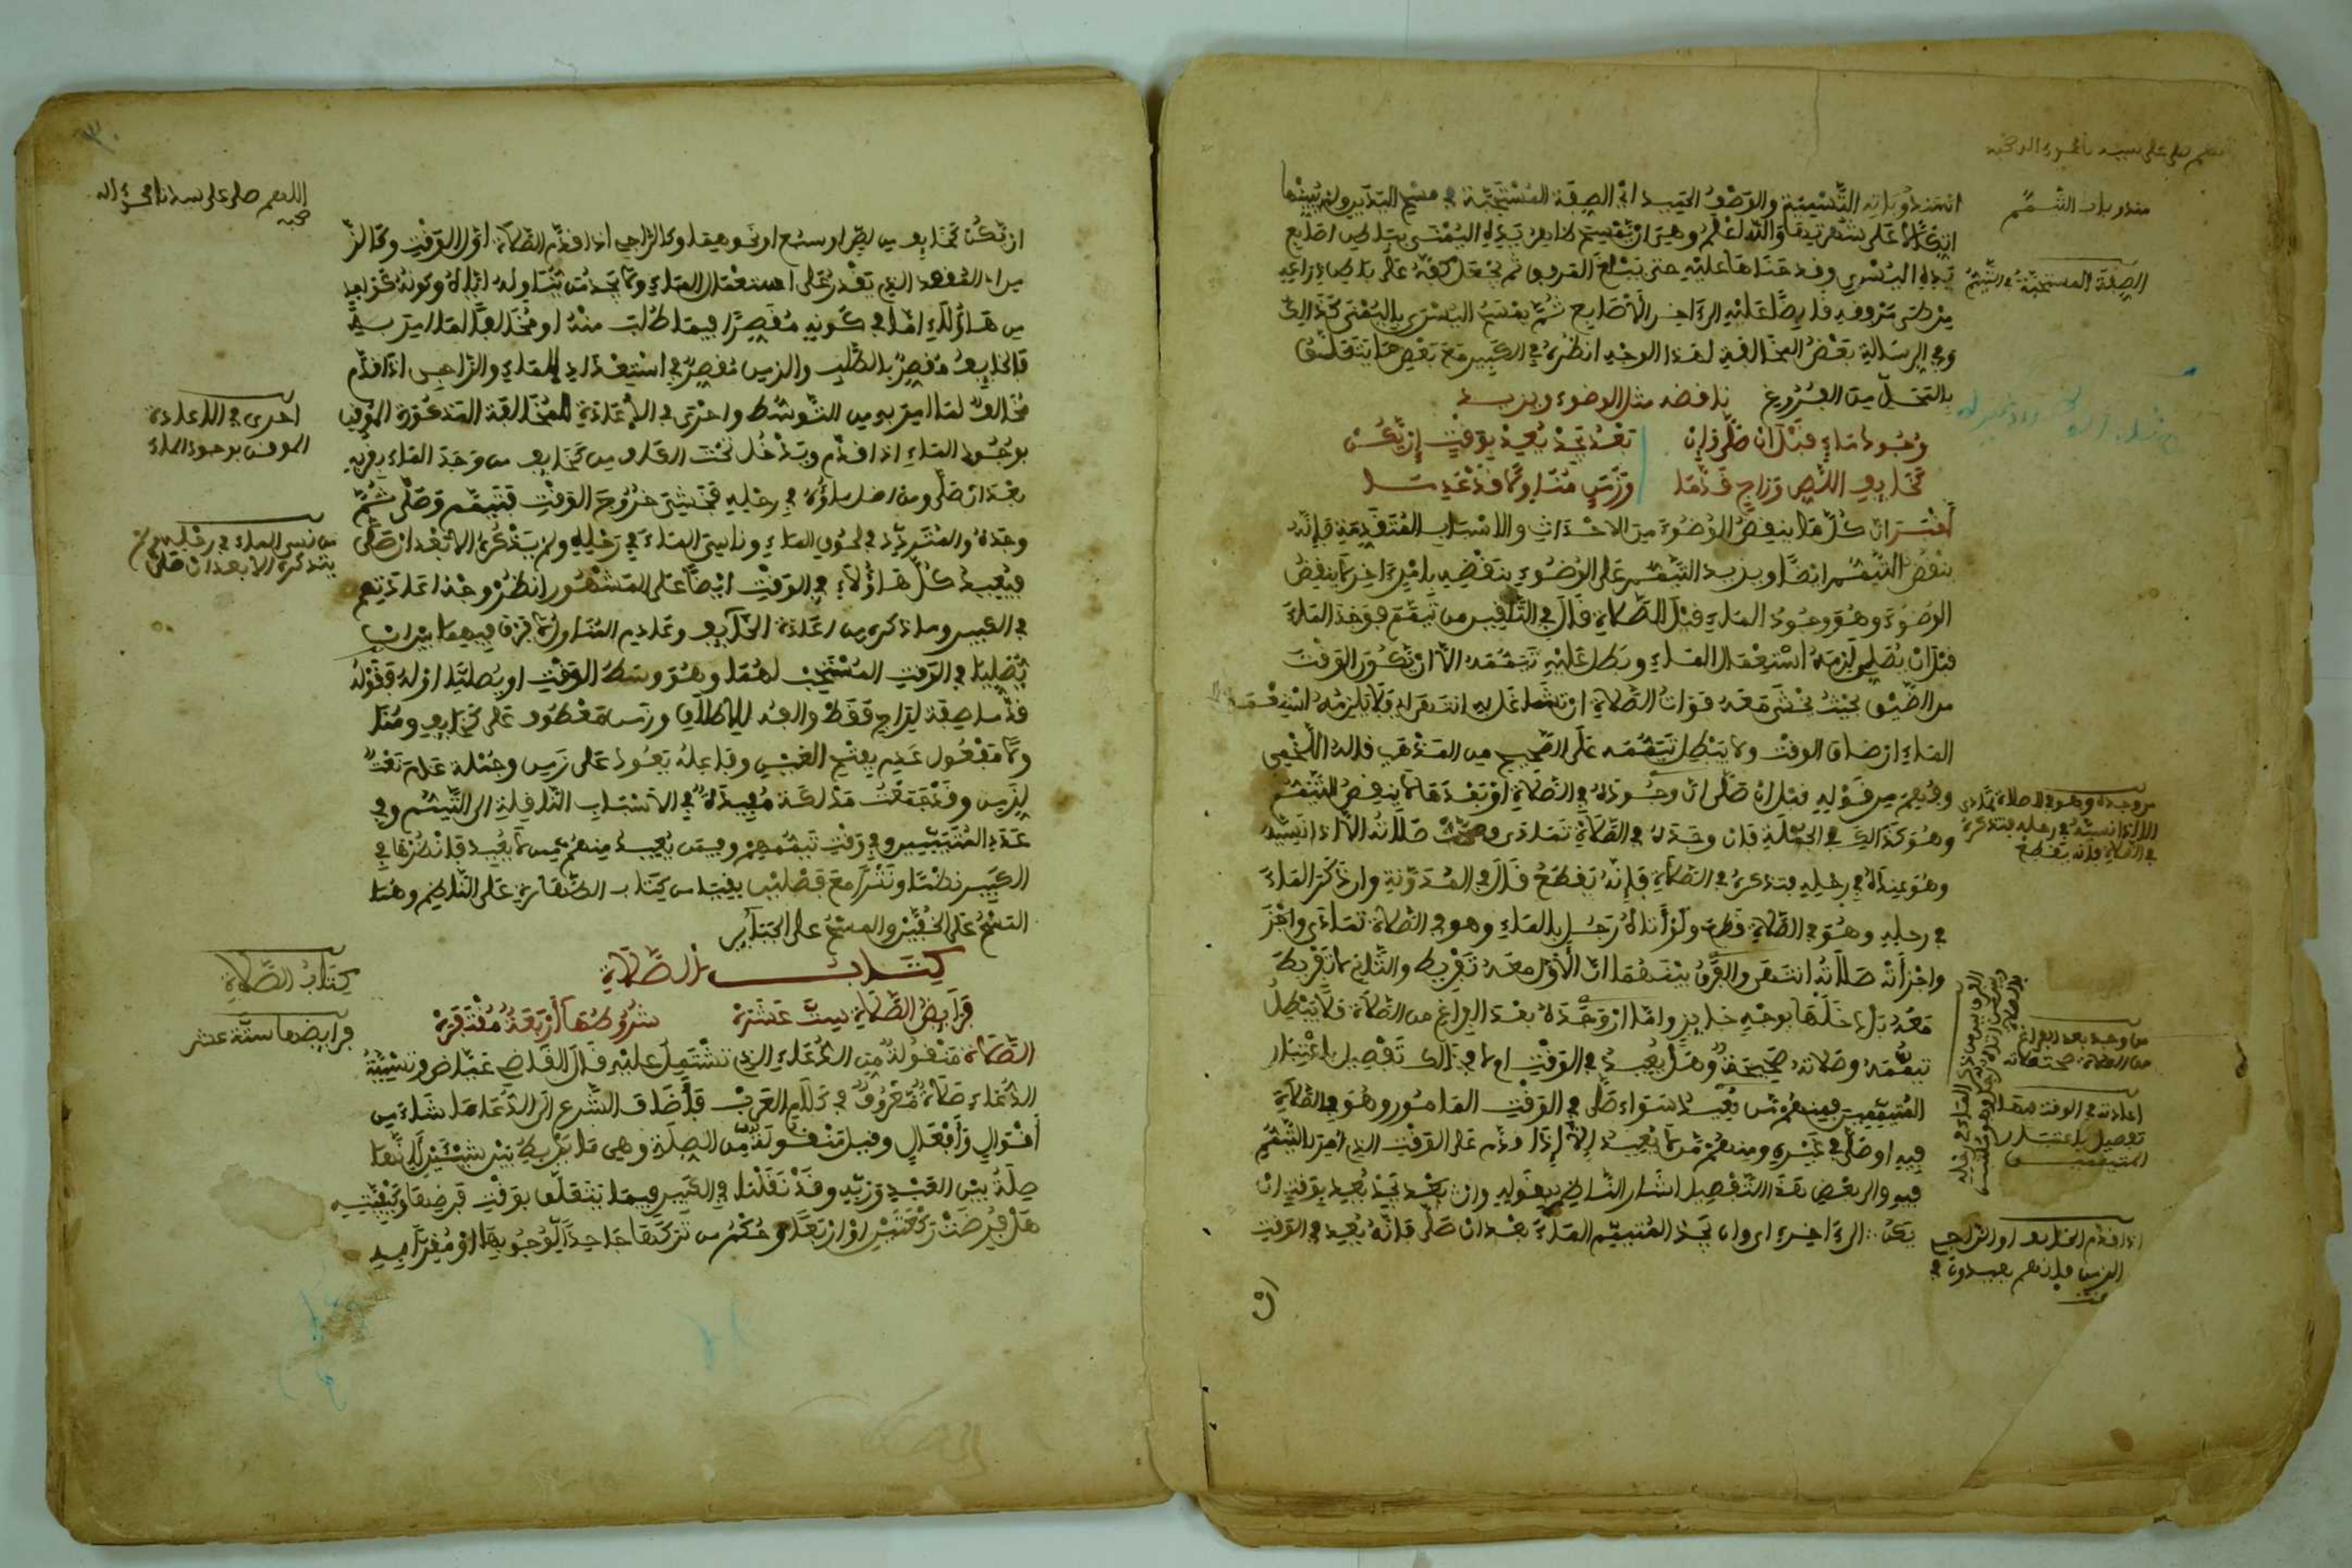 مندوبات التيمم
اثنين مندوباته التسمية والوصف الحميد اي الصفة المستحبة في مسح اليدين ولم يبينها
اتكالا على شهرتها والله اعلم وهي ان يمسح ظاهر يده اليمنى بباطن اصابع
الصفة المستحبة في التيمم
يده اليسرى وقد حناها عليه حتى يبلغ المرفق ثم يجعل كفه على باطن ذراعه
من طي مرفقه قابضا عليه الى اخر الاصابع ثم يمسح اليسرى باليمنى كذلك
وفي الرسالة بعض المخالفة لهذا الوجه انظره في الكبير مع بعض ما يتعلق
بالمحل من الفروع ناقضه مثل الوضوء ويزيد
وجود ماء قبل ان صلى وان بعد يجد يعد بوقت ان يكن
كخايف اللص وراج قدما وزمن مناولا قد عدما
أخبر ان كل ما ينقض الوضوء من الاحداث والاسباب المتقدمة فانه
ينقض التيمم ايضا ويزيد التيمم على الوضوء بنقضه بامر اخر لا ينقض
الوضوء وهو وجود الماء قبل الصلاة قال في التلقين من تيمم فوجد الماء
قبل ان يصلي لزمه استعمال الماء وبطل عليه تيممه الا ان يكون الوقت
من الضيق بحيث يخشى معه فوات الصلاة ان تشاغل به انتهى فلا يلزمه استعمال
الماء ان ضاق الوقت ولا يبطل تيممه على الصحيح من المذهب قاله اللخمي
وفهم من قوله قبل ان صلى ان وجوده في الصلاة او بعدها لا ينقض التيمم
وهو كذلك في الجملة فان وجده في الصلاة تمادى وصحت صلاته الا اذا نسيه
وهو عنده في رحله فتذكره في الصلاة فانه يقطع قال في المدونة وان ذكر الماء
في رحله وهو في الصلاة قطع ولو أتاه رجل بالماء وهو في الصلاة تمادى واجزأ
واجزأته صلاته انتهى والفرق بينهما ان الاول معه تفريط والثاني لا تفريط
معه بل دخلها بوجه جايز واما ان وجده بعد الفراغ من الصلاة فلا يبطل
تيممه وصلاته صحيحة وهل يعيد في الوقت ام لا في ذلك تفصيل باعتبار
المتيممين فمنهم من يعيد سواء صلى في الوقت المامور وهو في الصلاة
فيه او صلى في غيره ومنهم من لا يعيد إلا إذا قدم على الوقت الذي امر بالتيمم
فيه والى بعض هذا التفصيل اشار الناظم بقوله وان بعد يجد يعد بوقت ان
يكن الى اخره اي وان يجد المتيمم الماء بعد ان صلى فانه يعيد في الوقت
من وجده وهو في الصلاة تمادى
الا اذا نسيه في رحله فتذكره
في الصلاة فانه يقطع
من وجد بعد الفراغ
من الصلاة صحت صلاته
اعادته في الوقت فيها
تفصيل باعتبار
المتيممين
اذا قدم الخايف او الراجي
الزمن فانهم يعيدون في
ان
٣٠
اللهم صل على سيدنا محمد واله
وصحبه
ان يكن كخايف من لص او سبع او نحوهما وكالراجي اذا قدم الصلاة اول الوقت وكالزمن
اي المقعد الذي يقدر على استعمال الماء ولا يجد من يناوله اياه وكون غير
من هاؤلاء اما في كونه مقصرا فيما طلب منه او مخالفا لما امر به
فالخايف مقصر بالطلب والزمن مقصر في استعداد الماء والراجي اذا قدم
مخالف لما امر به من التوسط واحرى في الاعادة للمخالفة المذكورة الموقن
احرى في الاعادة
الموقن بوجود الماء
بوجود الماء اذا قدم ويدخل تحت الكاف من كخايف من وجد الماء بقربه
بعد ان صلى ومن اضل ماؤه في رحله فخشي خروج الوقت فتيمم وصلى ثم
وجده والمتردد في لحوق الماء وناسي الماء في رحله ولم يذكره الا بعد ان صلى
من نسي الماء في رحله ولم
يتذكره الا بعد ان صلى
فيعيد كل هاؤلاء في الوقت ايضا على المشهور انظر وجه اعادتهم
في الكبير وما ذكره من اعادة الخايف وعادم المناول لا فرق فيهما بين ان
يصليا في الوقت المستحب لهما وهو وسط الوقت او يصليا اوله فقوله
قدما صفة لراج فقط والفه للاطلاق وزمن معطوف على كخايف ومنا
ولا مفعول عدم بفتح العين وفاعله يعود على زمن وجملة عدم نعت
لزمن وقد جمعت مذاكرة مفيدة في الاسباب الناقلة الى التيمم وفي
عدد المتيممين وفي وقت تيممهم وفيمن يعيد منهم ممن لا يعيد فانظرها في
الكبير نظما ونثرا مع فصلين بقيتا من كتاب الطهارة على الناظم وهما
المسح على الخفين والمسح على الجباير
كتاب الصلاة
كتاب الصلاة
فرايض الصلاة ست عشرة شروطها أربعة مفتقرة
فرايضها ستة عشر
الصلاة منقولة من الدعاء الذي تشتمل عليه قال القاضي عياض وتسمية
الدعاء صلاة معروف في كلام العرب فأضاف الشرع الى الدعاء ما شاء من
أقوال وأفعال وقيل منقولة من الصلة وهي ما يربط بين شيئين لانها
صلة بين العبد وربه وقد نقلنا في الكبير فيما يتعلق بوقت فرضها وكيفيته
هل فرضت ركعتين او اربعا وحكم من تركها جاحدا لوجوبها او مقرا به